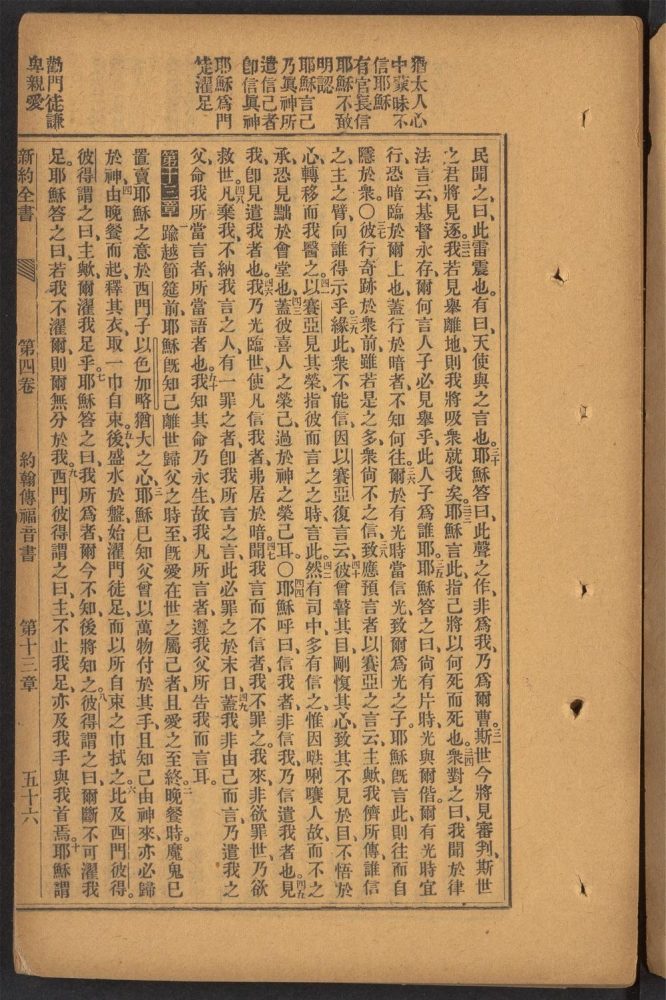 猶太人心
中蒙昧不
信耶穌
有官長信
耶穌不敢
明認
耶穌言己
乃眞神所
遣信己者
卽信眞神
耶穌爲門
徒濯足
勸門徒謙
卑親愛
民聞之曰此雷震也有曰天使與之言也三十耶穌答曰此聲之作非爲我乃爲爾曹三一斯世今將見審判斯世
之君將見逐三二我若見舉離地則我將吸衆就我矣三三耶穌言此指己將以何死而死也三四衆對之曰我聞於律
法言云基督永存爾何言人子必見舉乎此人子爲誰耶三五耶穌答之曰尙有片時光與爾偕爾有光時宜
行恐暗臨於爾上也蓋行於暗者不知何往三六爾於有光時當信光致爾爲光之子耶穌旣言此則往而自
隱於衆〇三七彼行奇跡於衆前雖若是之多衆尙不之信三八致應預言者以賽亞之言云主歟我儕所傳誰信
之主之臂向誰得示乎三九緣此衆不能信因以賽亞復言云四十彼曾瞽其目剛愎其心致其不見於目不悟於
心轉移而我醫之四一以賽亞見其榮指彼而言之之時言此四二然有司中多有信之惟因𠵽唎㘔人故而不之
承恐見黜於會堂也四三蓋彼喜人之榮己過於神之榮己耳〇四四耶穌呼曰信我者非信我乃信遣我者也四五見
我卽見遣我者也四六我乃光臨世使凡信我者弗居於暗四七聞我言而不信者我不罪之我來非欲罪世乃欲
救世四八凡棄我不納我言之人有一罪之者卽我所言之言此必罪之於末日四九蓋我非由己而言乃遣我之
父命我所當言者所當語者也五十我知其命乃永生故我凡所言者遵我父所告我而言耳
第十三章 一踰越節筵前耶穌旣知己離世歸父之時至旣愛在世之屬己者且愛之至終二晚餐時魔鬼已
置賣耶穌之意於西門子以色加略猶大之心三耶穌已知父曾以萬物付於其手且知己由神來亦必歸
於神四由晚餐而起釋其衣取一巾自束五後盛水於盤始濯門徒足而以所自束之巾拭之六比及西門彼得
彼得謂之曰主歟爾濯我足乎七耶穌答之曰我所爲者爾今不知後將知之八彼得謂之曰爾斷不可濯我
足耶穌答之曰若我不濯爾則爾無分於我九西門彼得謂之曰主不止我足亦及我手與我首焉十耶穌謂
新約全書 第四卷 約翰傳福音書 第十三章 五十六